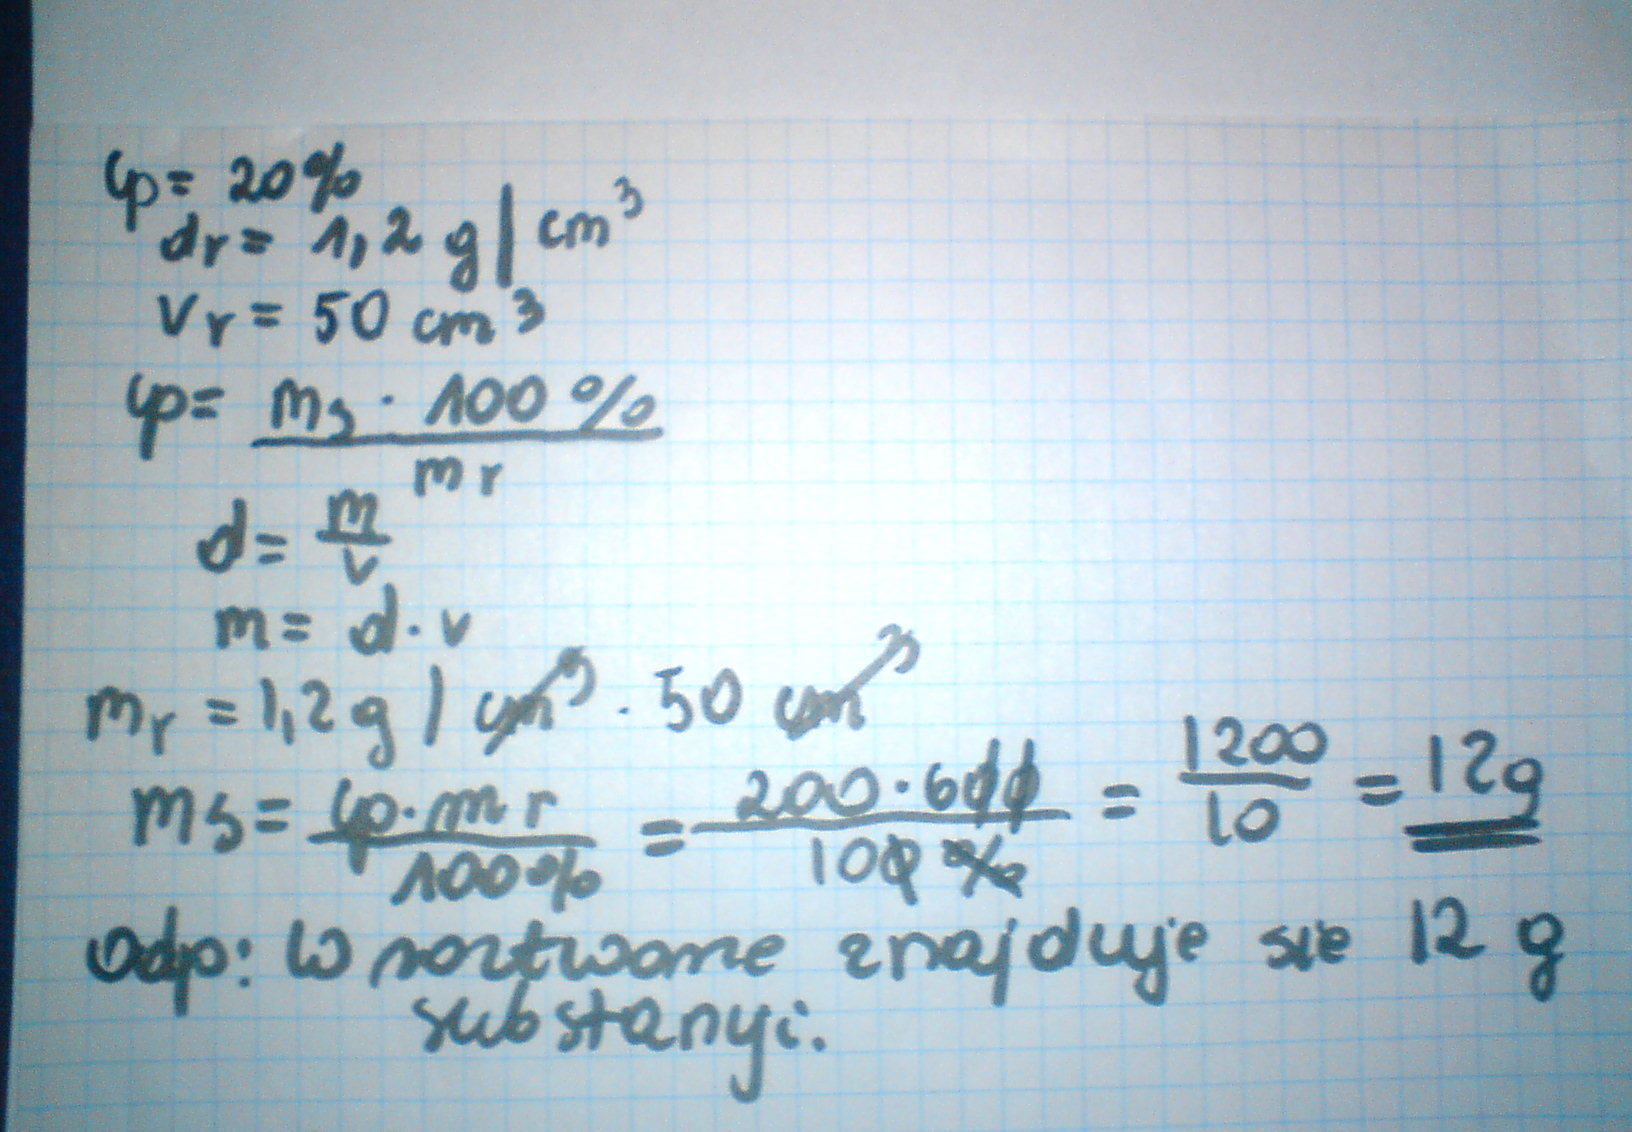 cp= 20%
dr= 1,2 g/cm³
vr= 50 cm³
cp= ms · 100%
mr
d= m/v
m= d·v
mr =1,2g/cm³ · 50 cm³
ms= cp·mr / 100% = 200·600 / 100% = 1200 / 10 = 12g
odp: W roztworze znajduje sie 12 g
substanyi.